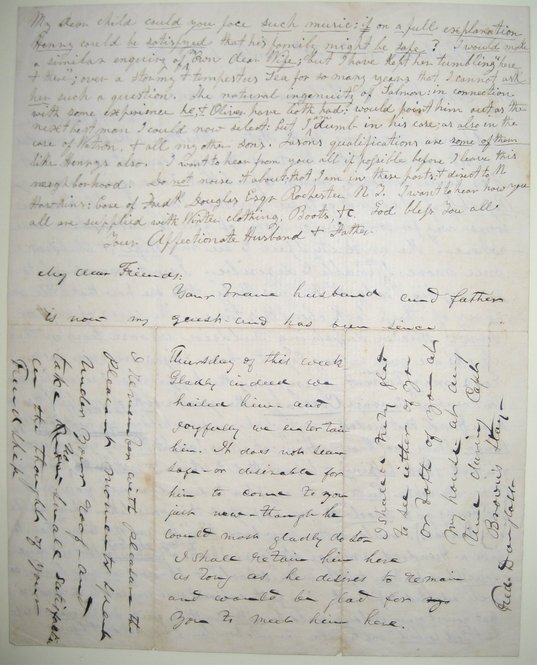 My dear child could you face such music: if on a full explanation
Henry could be satisfied that his family might be safe? I would make
a similar enquiry of my own dear Wife; but I have kept her tumbling "here
& there"; over a stormy & tempestuous Sea for so many years that I cannot ask
her such a question. The natural ingenuity of Salmon: in connection
with some experience he, & Oliver have both had; would point him out as the
next best man I could now select: but I am dumb in his case; as also in the
case of Watson, & all my other sons. Jasons qualifications are some of them
like Henrys also. I want to hear from you all if possible before I leave this
neighborhood. Do not noise it about that I am in these parts; & direct to N
Hawkins: Care of Fredk Douglas Esqr Rochester N. Y. I want to hear how you
all are supplied with Winter clothing, Boots, &c. God bless You all.
Your Affectionate Husband & Father.
My dear Friends:
Your brave husband and father
is now my guest and has been since
Thursday of this week
Gladly indeed we
hailed him and
joyfully we entertain
him. It does not seem
safe or desirable for
him to come to you
just now though he
would most gladly do so
I shall retain him here
as long as he desires to remain
and would be glad for my
You to meet him here.
I shall be very glad
to see either of you
or both of you at
my house at any
time during Capt
Brown's stay
Fred Douglass
I Remember with pleasure the
pleasant moments spent
under your roof and
take no small satisfact
in the thought of your
friendship